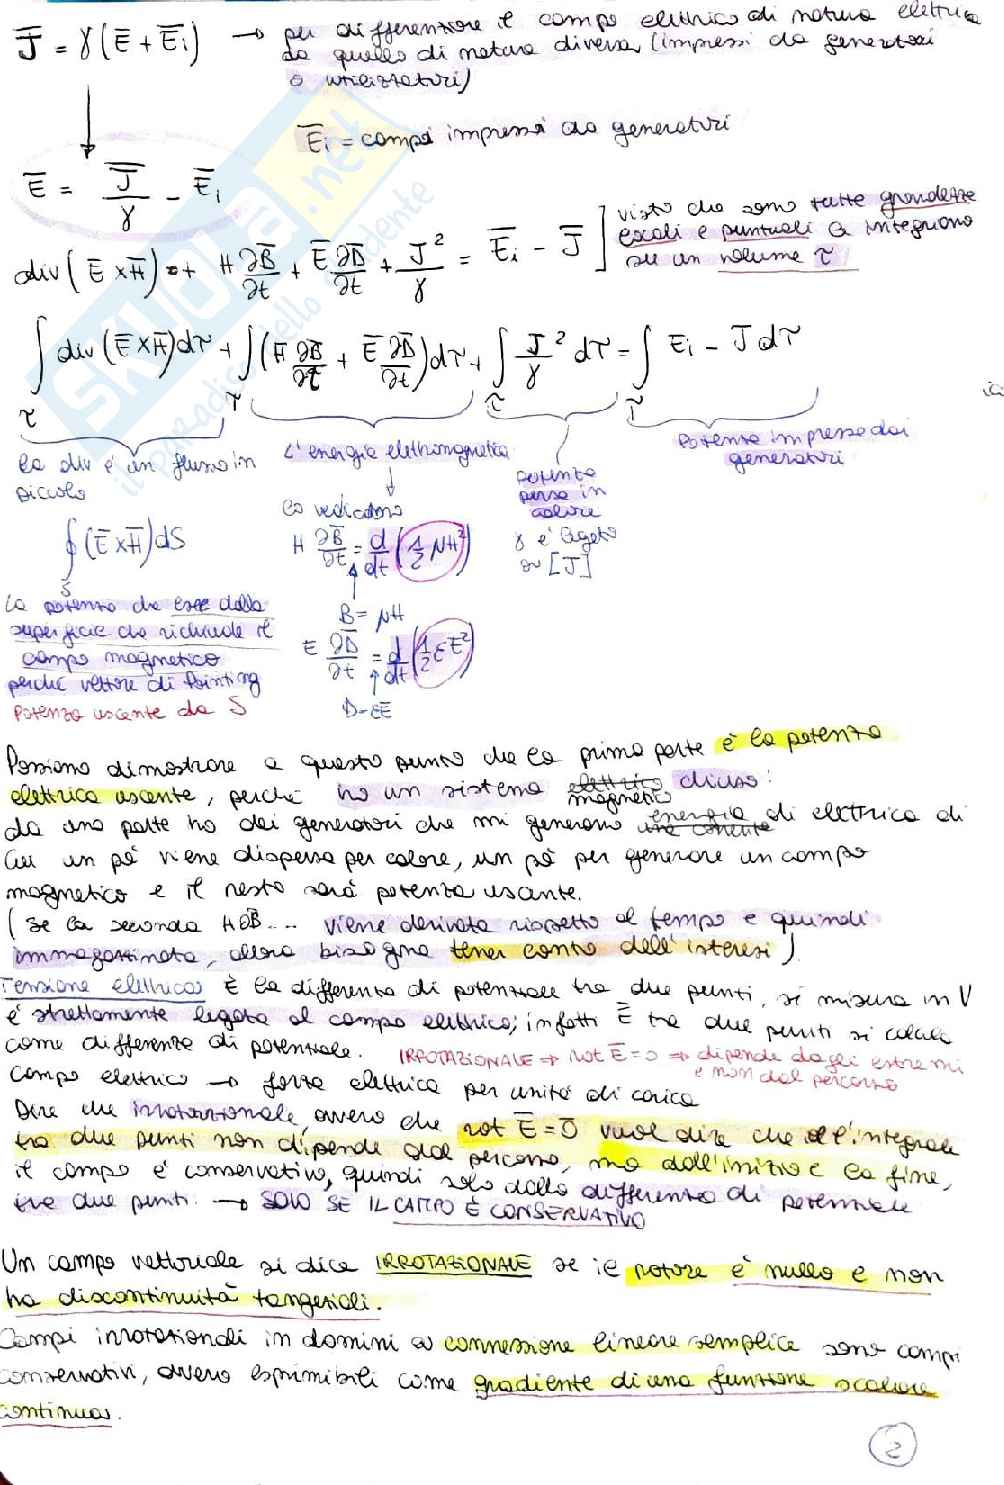 J̅ = γ(E̅ + E̅i) → per differenziare il campo elettrico di natura elettrica
da quello di natura diversa (impressi da generatori
o utilizzatori)
E̅i = campi impressi da generatori
E̅ = J̅/γ - E̅i
div(E̅ x H̅) + H ∂B̅/∂t + E̅ ∂D̅/∂t + J̅²/γ = E̅i - J̅ ]
visto che sono tutte grandezze
scalari e puntuali le integriamo
su un volume τ
∫τ div(E̅ x H̅)dτ + ∫τ (H̅ ∂B̅/∂t + E̅ ∂D̅/∂t)dτ + ∫τ J̅²/γ dτ = ∫τ Ei - J̅ dτ
la div è un flusso in
piccolo
∮S (E̅ x H̅)dS
La potenza che esce dalla
superficie che richiude il
campo magnetico
perché vettore di Pointing
Potenza uscente da S
L'energia elettromagnetica
lo vediamo
H ∂B̅/∂t = d/dt (1/2 μH²)
B = μH
E ∂D̅/∂t = d/dt (1/2 εE²)
D = εE̅
potenza
persa in
calore
γ è legato
a [J]
Potenza impressa dai
generatori
Possiamo dimostrare a questo punto che la prima parte è la potenza
elettrica uscente, perché ho un sistema elettrico magnetico chiuso:
da una parte ho dei generatori che mi generano una corrente energia di elettrica di
cui un pò viene dispersa per calore, un pò per generare un campo
magnetico e il resto sarà potenza uscente.
(Se la seconda H∂B̅... viene derivata rispetto al tempo e quindi
immagazzinata, allora bisogna tener conto dell'isteresi)
Tensione Elettrica È la differenza di potenziale tra due punti, si misura in V
è strettamente legata al campo elettrico; infatti E̅ tra due punti si calcola
come differenza di potenziale. IRROTAZIONALE ⇒ rot E̅=0 ⇒ dipende dagli estremi
e non dal percorso
Campo elettrico → forza elettrica per unità di carica
Dire che irrotazionale, ovvero che rot E̅ = 0 vuol dire che l'integrale
tra due punti non dipende dal percorso, ma dall'inizio e la fine,
il campo è conservativo, quindi solo dalla differenza di potenziale
tra due punti. → SOLO SE IL CAMPO È CONSERVATIVO
Un campo vettoriale si dice IRROTAZIONALE se il rotore è nullo e non
ha discontinuità tangenziali.
Campi irrotazionali in domini a connessione lineare semplice sono campi
conservativi, ovvero esprimibili come gradiente di una funzione scalare
continua.
2
SKUOLA.net
il paradiso dello studente